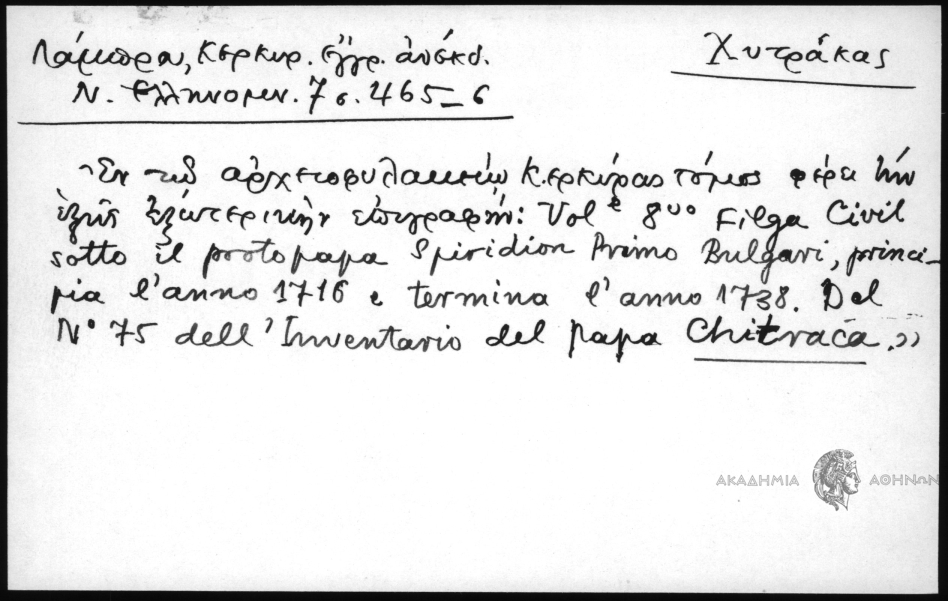 Λάμπρου, Κερκυρ. ἔγγρ. ἀνέκδ.
Χυτράκας
Ν. Ἑλληνομν. 7 σ. 465-6
Ἐν τῷ ἀρχειοφυλακείῳ Κερκύρας τόμος φέρει τὴν
ἑξῆς ἐξωτερικὴν ἐπιγραφήν: Vol e 8vo Filza Civil
sotto il protopapa Spiridion Primo Bulgari, princi-
pia l'anno 1716 e termina l'anno 1738. Del
Nº 75 dell'Inventario del papa Chitraca.»
ΑΚΑΔΗΜΙΑ ΑΘΗΝΩΝ